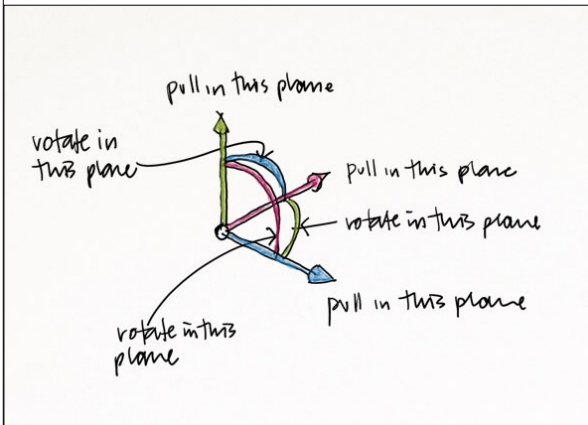 pull in this plane
rotate in
this plane
pull in this plane
rotate in this plane
pull in this plane
rotate in this
plane